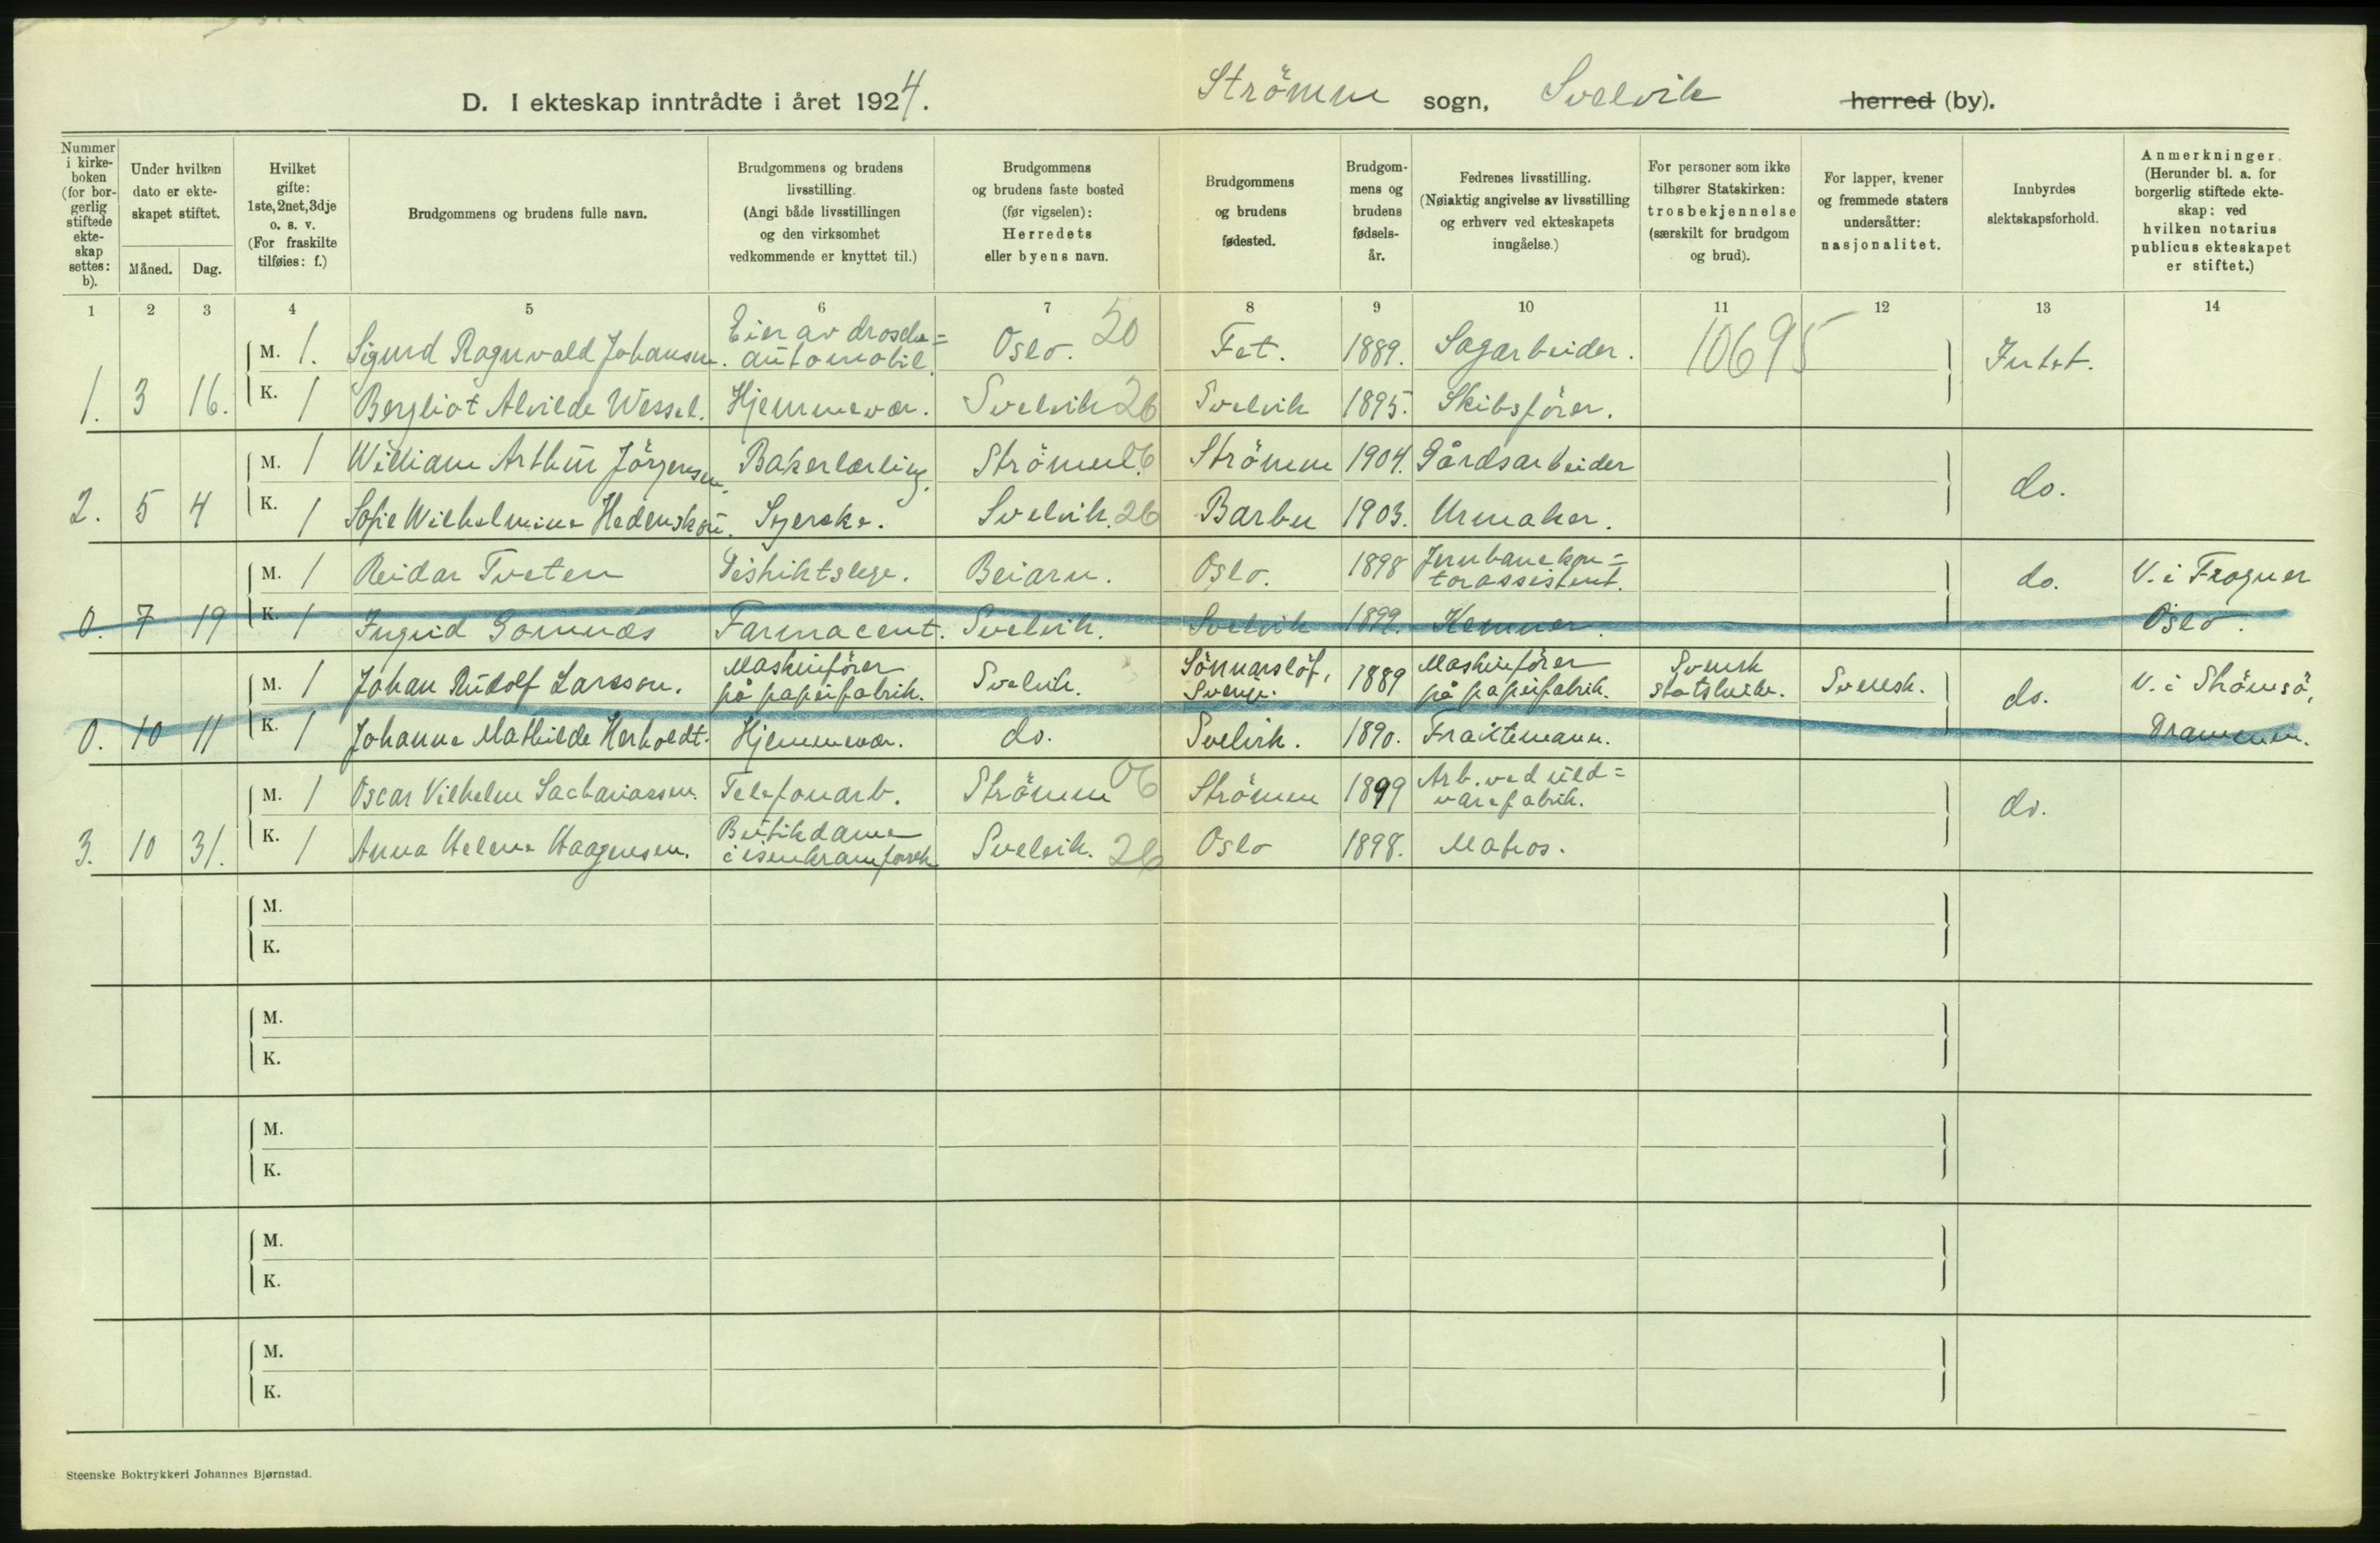 D. I ekteskap inntrådte i året 1924. Strömm sogn, Svelvik herred (by).
Nummer i kirkeboken (for borgerlig stiftede ekteskap settes: b).
Under hvilken dato er ekteskapet stiftet.
Måned. Dag.
Hvilket gifte: 1ste, 2net, 3dje o. s. v. (For fraskilte tilføies: f.)
Brudgommens og brudens fulle navn.
Brudgommens og brudens livsstilling. (Angi både livsstillingen og den virksomhet vedkommende er knyttet til.)
Brudgommens og brudens faste bosted (før vigselen): Herredets eller byens navn.
Brudgommens og brudens fødested.
Brudgommens og brudens fødselsår.
Fedrenes livsstilling. (Nøiaktig angivelse av livsstilling og erhverv ved ekteskapets inngåelse.)
For personer som ikke tilhører Statskirken: trosbekjennelse (særskilt for brudgom og brud).
For lapper, kvener og fremmede staters undersåtter: nasjonalitet.
Innbyrdes slektskapsforhold.
Anmerkninger. (Herunder bl. a. for borgerlig stiftede ekteskap: ved hvilken notarius publicus ekteskapet er stiftet.)
1 2 3 4 5 6 7 8 9 10 11 12 13 14
M. 1. Sigurd Ragnvald Johansen. Eier av drosche=automobil. Oslo. 20 Fet. 1889. Sagarbeider. 10695 Intet.
1. 3 16. K. 1 Bergliot Alvilde Wessel. Hjemmevær. Svelvik 26 Svelvik 1895. Skibsfører.
M. 1 William Arthur Jörgensen. Bakerlærling. Strömm 06 Strömm 1904. Gårdsarbeider do.
2. 5 4 K. 1 Sofie Wilhelmine Hedenskou. Syerske. Svelvik. 26 Barbu 1903. Urmaker.
M. 1 Reidar Tveten Distriktslege. Beiarn. Oslo. 1898 Jernbanekon=torassistent. do. V. i Frogner
0. 7 19 K. 1 Ingrid Gomnæs Farmaceut. Svelvik. Svelvik 1899. Kemner. Oslo.
M. 1 Johan Rudolf Larsson. Maskinförer på papirfabrik. Svelvik. Sönnarslöf, Sverige. 1889 Maskinförer på papirfabrik. Svensk statskirke. Svensk. do. V. i Strömsö,
0. 10 11 K. 1 Johanne Mathilde Herholdt. Hjemmevær. do. Svelvik. 1890. Fraktemann. Drammen.
M. 1 Oscar Vilhelm Sachariassen. Telefonarb. Strömm 06 Strömm 1899 Arb. ved uld=varefabrik. do.
3. 10 31. K. 1 Anna Helene Haagensen. Butikdame i isenkramforr. Svelvik. 26 Oslo 1898. Matros.
M.
K.
M.
K.
M.
K.
M.
K.
M.
K.
Steenske Boktrykkeri Johannes Bjørnstad.